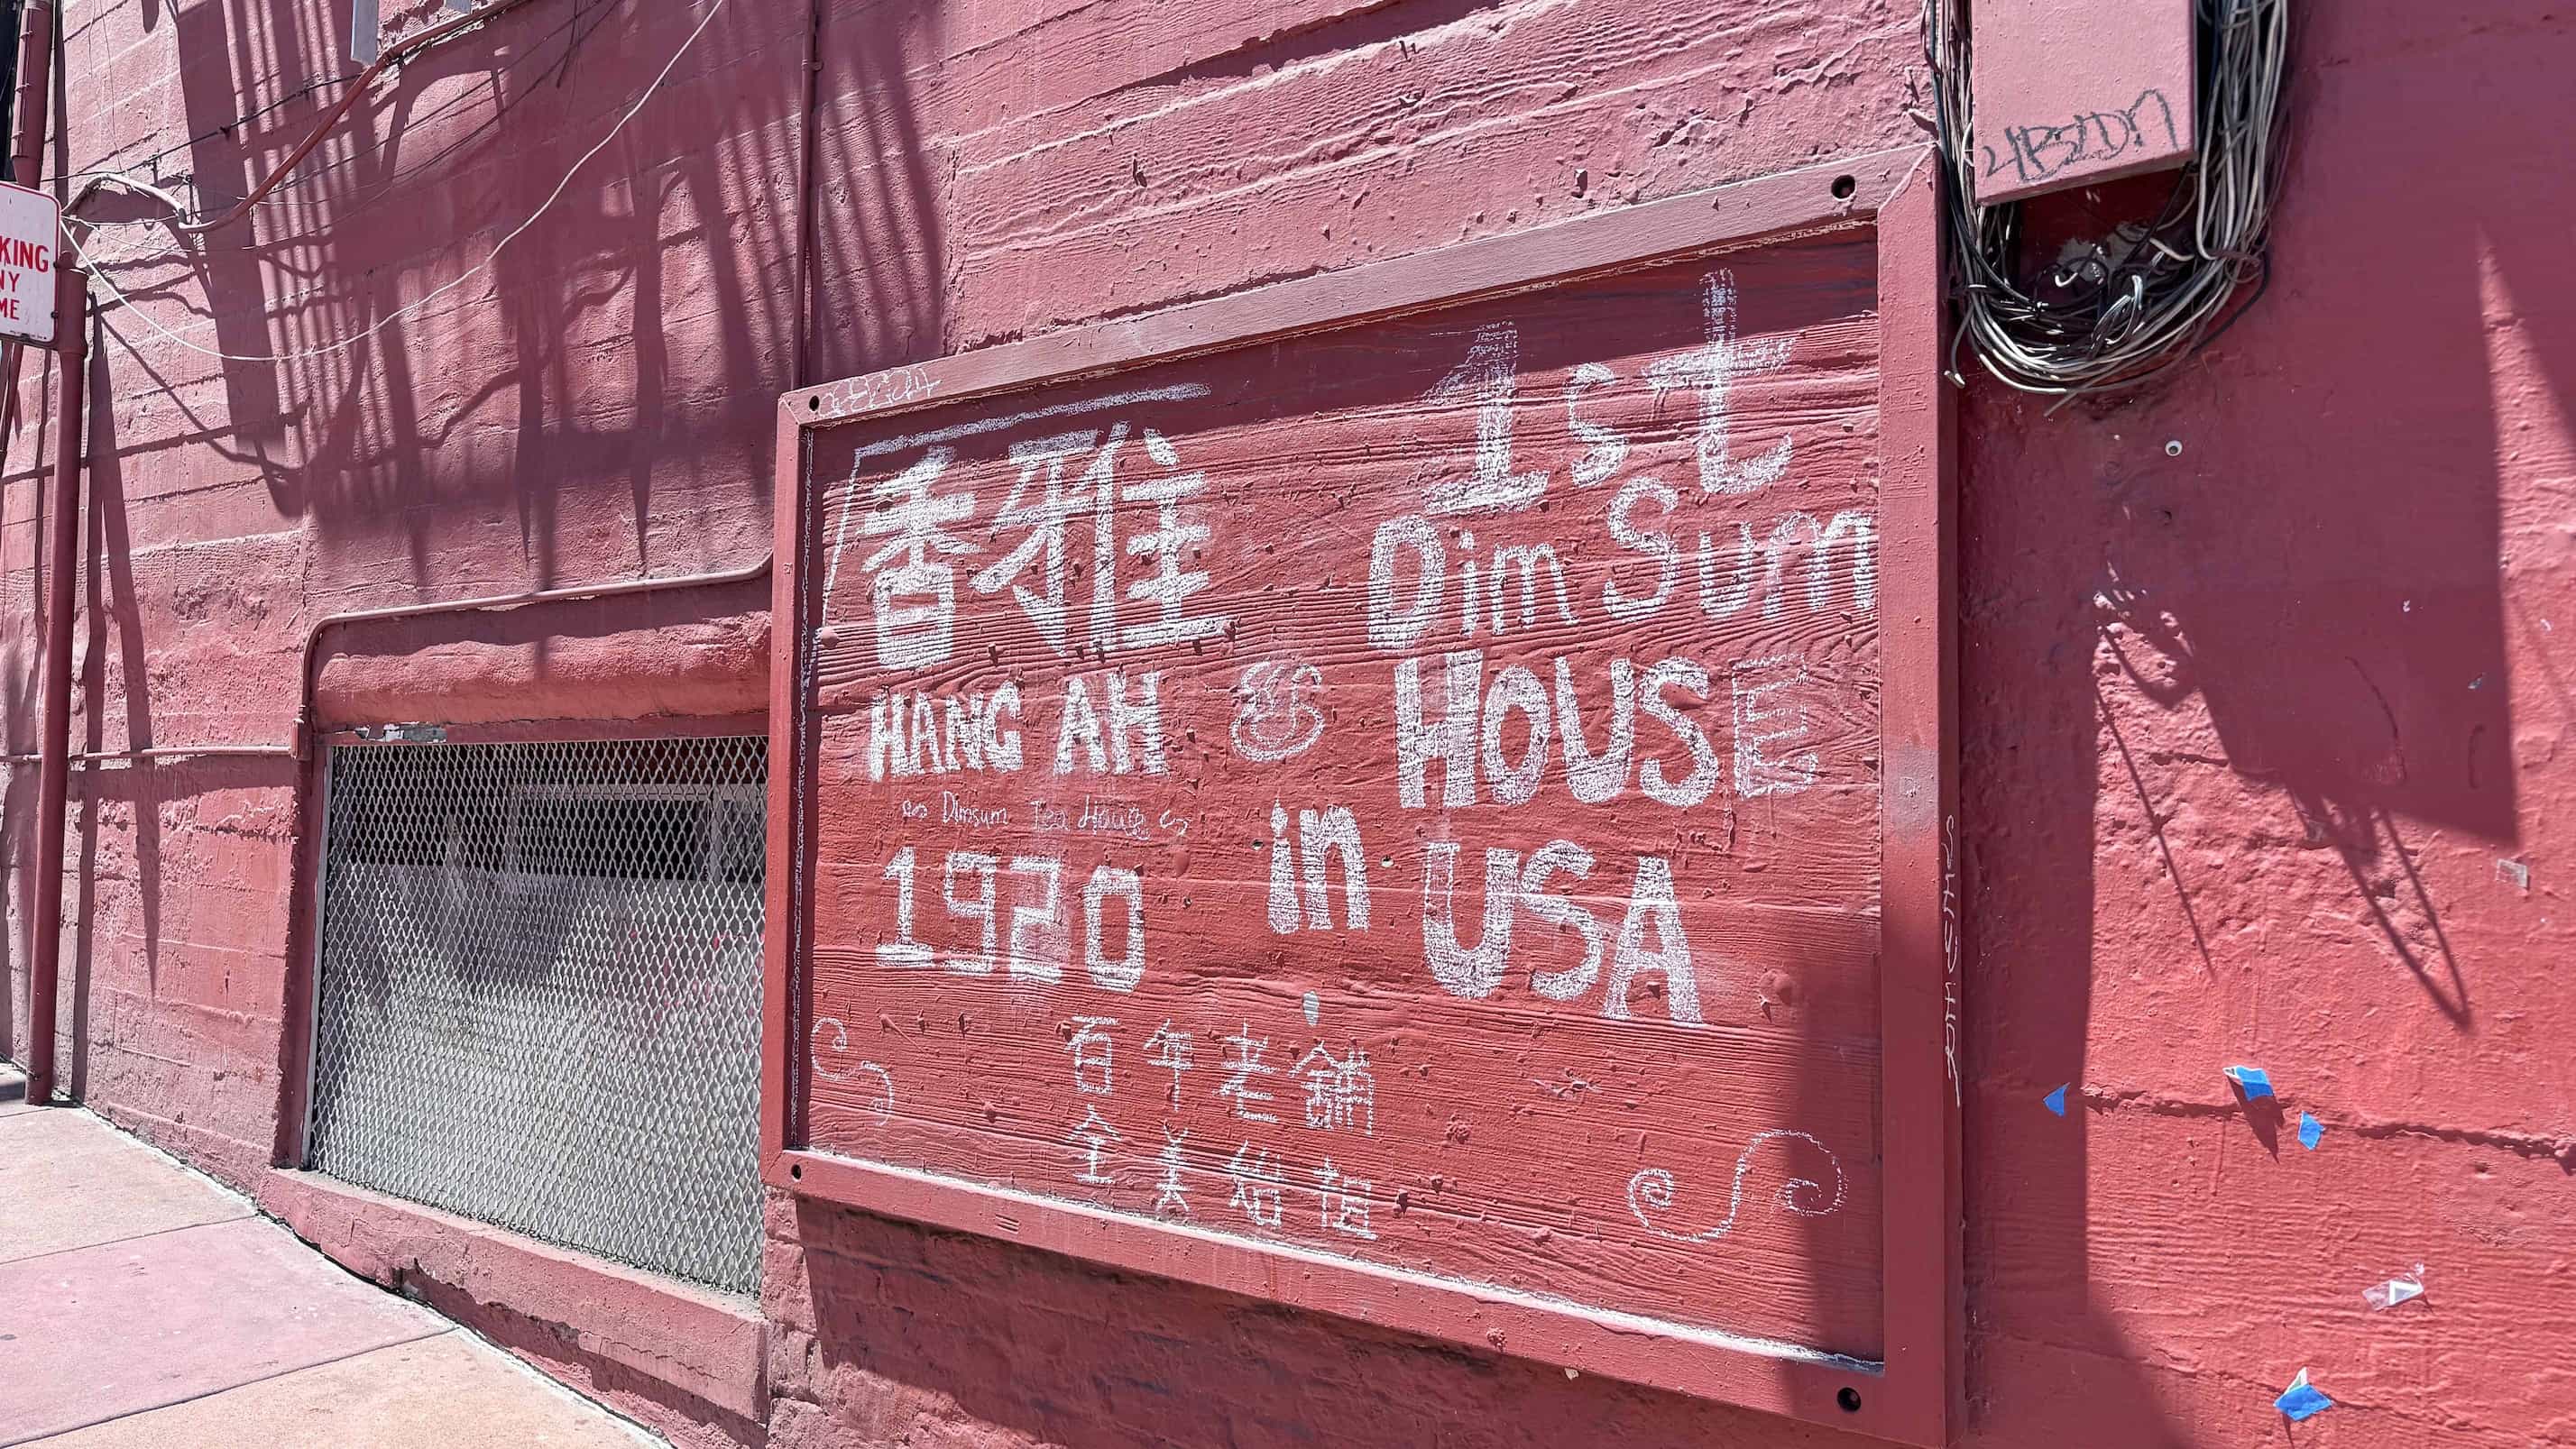 KING
NY
ME
香雅
HANG AH
Dimsum Tea House
1920
1st
Dim Sum
HOUSE
in USA
百年老舖
全美始祖